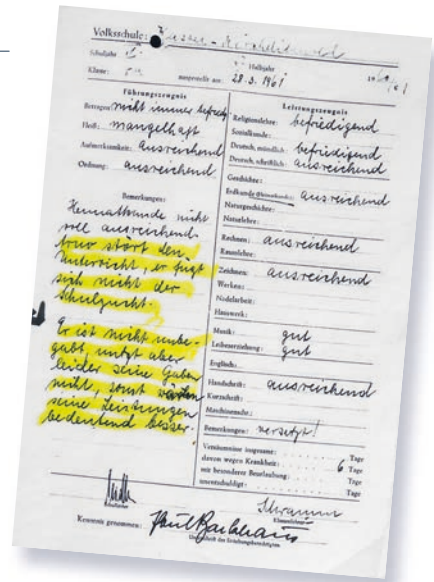 Volksschule: Kassel-Kirchditmold
Schuljahr
Halbjahr 1960/61
Klasse: ausgestellt am: 28.3.1961
Führungszeugnis
Betragen: nicht immer befried.
Fleiß: mangelhaft
Aufmerksamkeit: ausreichend
Ordnung: ausreichend
Bemerkungen:
Heimatkunde nicht
voll ausreichend.
stört den
Unterricht, er fügt
sich nicht der
Schulzucht.
Er ist nicht unbe-
gabt, nützt aber
leider seine Gaben
nicht, sonst wären
seine Leistungen
bedeutend besser.
Leistungszeugnis
Religionslehre: befriedigend
Sozialkunde:
Deutsch, mündlich: befriedigend
Deutsch, schriftlich: ausreichend
Geschichte:
Erdkunde (Heimatkunde): ausreichend
Naturgeschichte:
Naturlehre:
Rechnen: ausreichend
Raumlehre:
Zeichnen: ausreichend
Werken:
Nadelarbeit:
Hauswerk:
Musik: gut
Leibeserziehung: gut
Englisch:
Handschrift: ausreichend
Kurzschrift:
Maschinenschr.:
Bemerkungen: versetzt!
Versäumnisse insgesamt: Tage
davon wegen Krankheit: 6 Tage
mit besonderer Beurlaubung: Tage
unentschuldigt: Tage
Schulleiter
Schramm
Klassenlehrer
Kenntnis genommen: Paul Backhaus
Unterschrift des Erziehungsberechtigten